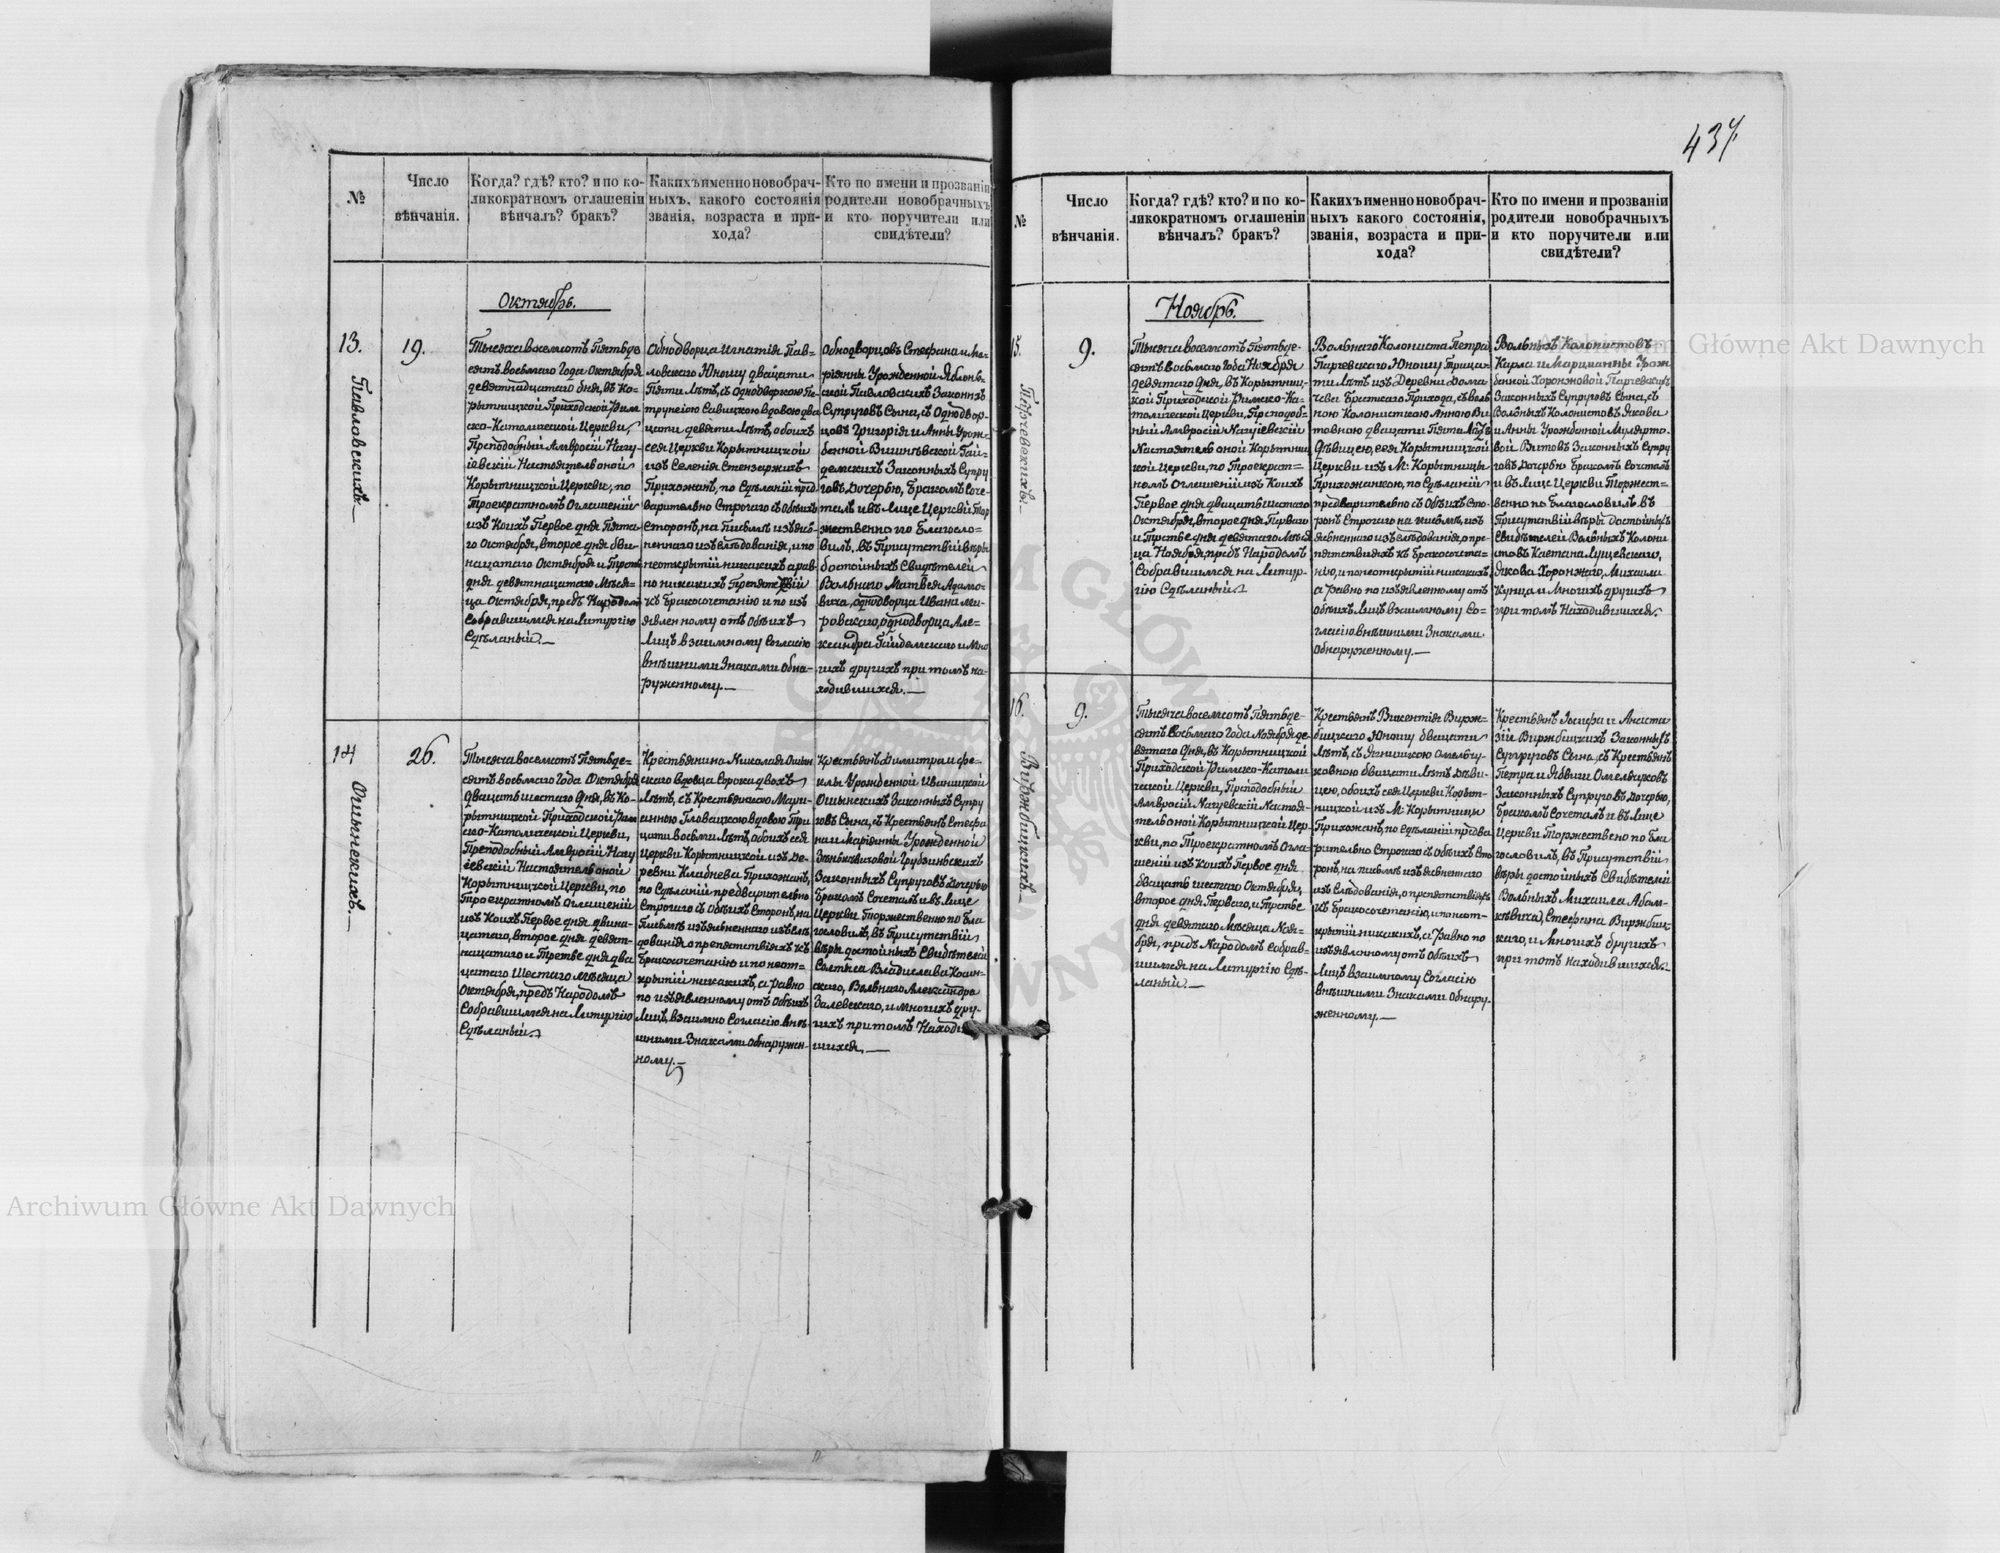 №
Число
вѣнчанія.
Когда? гдѣ? кто? и по ко-
ликократномъ оглашеніи
вѣнчалъ? бракъ?
Какихъ именно новобрач-
ныхъ, какого состоянія
званія, возраста и при-
хода?
Кто по имени и прозваніи
родители новобрачныхъ
и кто поручители или
свидѣтели?
Октябрь.
13.
Павловскихъ.
19.
Тысяча восемсотъ Пятьде
сятъ восьмаго Года Октября
девятнадцатаго дня, въ Ко-
рытницкой Приходской Рим
ско-Католической Церкви,
Преподобный Амвросій Нагу-
іевскій Настоятель оной
Корытницкой Церкви, по
Троекратномъ Оглашеніи
изъ Коихъ Первое дня Пята-
го Октября, второе дня дви-
нацатаго Октября и Третіе
дня девятнацатаго Мѣся-
ца Октября, предъ Народомъ
Собравшимся на Литургію
Сдѣланый.
Однодворца Игнатія Пав-
ловскаго Юношу двацати
Пяти Лѣтъ, съ Однодворкою Пе-
трунелію Савицкою вдовою два
цати девяти Лѣтъ, обоихъ
сея Церкви Корытницкой
изъ Селенія Стензаржихъ
Прихожанъ, по Сдѣланій пред-
варительно Строгаго съ Обѣихъ
Сторонъ, на Письмѣ изъяс-
неннаго изслѣдованія, и по
неоткрытій никакихъ а рав-
но никакихъ Препятствій
къ Бракосочетанію и по изъ
явленному отъ Обѣихъ
Лицъ взаимному Согласію
внѣшними Знаками Обна-
руженному.
Однодворцовъ Стефана и Ма-
ріянны Урожденной Яблонь-
ской Павловскихъ Законныхъ
Супруговъ Сына, съ Однодвор-
цовъ Григорія и Анны Урож-
денной Вишневской Гай-
демскихъ Законныхъ Супру
говъ Дочерью, Бракомъ Соче-
талъ и въ Лице Церкви Тор
жественно по Благосло-
вилъ, въ Присутствій вѣры
достойныхъ Свидѣтелей
Вольнаго Матвея Адамо-
вича, однодворца Ивана Ми-
ровскаго, однодворца Але-
ксандра Гайдемскаго и Мно
гихъ другихъ при томъ на-
ходившихся.
14
Ошинскихъ.
26.
Тысяча восемсотъ Пятьде-
сятъ восьмаго Года Октября
двацать шестаго Дня, въ Ко-
рытницкой Приходской Рим
ско-Католической Церкви,
Преподобный Амвросій Нагу
іевскій Настоятель оной
Корытницкой Церкви, по
Троекратномъ Оглашеній
изъ Коихъ Первое дня двина-
цатаго, второе дня девят-
нацатаго и Третье дня два
цатаго Шестаго Мѣсяца
Октября, предъ Народомъ
Собравшимся на Литургію
Сдѣланый.
Крестьянина Николая Ошин
скаго вдовца Сорока двохъ
Лѣтъ, съ Крестьянкою Мари-
анною Гловацкою вдовою Три
цати восьми Лѣтъ, обоихъ сея
Церкви Корытницкой изъ Де-
ревни Кладнева Прихожанъ,
по Сдѣланій предварительно
Строгаго съ Обѣихъ Сторонъ, на
Письмѣ изъявленнаго изслѣ
дованія о препятствіяхъ къ
Бракосочетанію и по неот-
крытій никакихъ, а равно
по изъявленному отъ Обѣихъ
Лицъ, взаимно Согласію внѣ
шними Знаками обнаружен-
ному.
Крестьянъ Димитра и Фе-
клы Урожденной Ивиницкой
Ошинскихъ Законныхъ Супру
говъ Сына, съ Крестьянъ Стефа
на и Маріянны Урожденной
Грубзинскихъ
Законныхъ Супруговъ Дочерью
Бракомъ Сочеталъ и въ Лице
Церкви Торжественно по Бла
гословилъ, въ Присутствій
вѣры достойныхъ Свидѣтелей
Солтыса Владислава
Вольнаго Александра
Залевскаго, и Многихъ дру-
гихъ при томъ Находи
шихся.
437
№
Число
вѣнчанія.
Когда? гдѣ? кто? и по ко-
ликократномъ оглашеніи
вѣнчалъ? бракъ?
Какихъ именно новобрач-
ныхъ какого состоянія,
званія, возраста и при-
хода?
Кто по имени и прозваніи
родители новобрачныхъ
и кто поручители или
свидѣтели?
Ноябрь.
15.
Парчевскихъ.
9.
Тысяча восемсотъ Пятьде-
сятъ восьмаго Года Ноября
девятаго Дня, въ Корытниц-
кой Приходской Римско-Ка-
толической Церкви, Преподоб-
ный Амвросій Нагуіевскій
Настоятель оной Корытниц
кой Церкви, по Троекрат-
номъ Оглашеній изъ Коихъ
Первое дня двацать шестаго
Октября, второе дня Перваго
и Третье дня девятаго Мѣся
ца Ноября, предъ Народомъ
Собравшимся на Литур-
гію Сдѣланый.
Вольнаго Колониста Петра
Парчевскаго Юношу Трица-
ти Лѣтъ изъ Деревни
Брестскаго Прихода, съ Воль
ною Колонисткою Анною Ви
товною двацати Пяти Лѣтъ
Дѣвицею, сея Корытницкой
Церкви изъ М: Корытницы
Прихожанкою, по Сдѣланій
предварительно съ Обѣихъ Сто-
ронъ Строгаго на письмѣ, изъ
явленнаго изслѣдованія, о пре-
пятствіяхъ къ Бракосочета-
нью, и по неоткрытій никакихъ,
а Равно по изъявленному отъ
обѣихъ Лицъ взаимному Со-
гласію внѣшними Знаками
Обнаруженному.
Вольныхъ Колонистовъ
Карла и Марціанны Урож
денной Хоронжовой Парчевскихъ
Законныхъ Супруговъ Сына, съ
Вольныхъ Колонистовъ Якова
и Анны Урожденной
Витовъ Законныхъ Супру
говъ Дочерью Бракомъ Сочеталъ
и въ Лице Церкви Торжест-
венно по Благословилъ въ
Присутствій вѣры достойныхъ
Свидѣтелей Вольныхъ Колони
стовъ Каетана
Якова Хоронжаго, Михаила
Кунца и Многихъ другихъ
при томъ Находившихся.
16.
Виржбицкихъ.
9.
Тысяча восемсотъ Пятьде-
сятъ восьмаго Года Ноября де
вятаго Дня, въ Корытницкой
Приходской Римско-Католи
ческой Церкви, Преподобный
Амвросій Нагуевскій Настоя-
тель оной Корытницкой Цер
кви, по Троекратномъ Огла
шеній изъ Коихъ Первое дня
двацать шестаго Октября,
второе дня Перваго, и Третье
дня девятаго Мѣсяца Ноя-
бря, предъ Народомъ Собрав-
шимся на Литургію Сдѣ-
ланый.
Крестьянъ Викентія Вирж-
бицкаго Юношу двацати
Лѣтъ, съ Ягнишкою Омельчу
ковною двацати Лѣтъ Дѣви-
цею, обоихъ сея Церкви Корыт-
ницкой изъ М: Корытницы
Прихожанъ, по Сдѣланій предва
рительно Строгаго съ Обѣихъ Сто
ронъ, на письмѣ изъявленнаго
изслѣдованія, о препятствіяхъ
къ Бракосочетанію, и по неот-
крытій никакихъ, а Равно по
изъявленному отъ Обѣихъ
Лицъ взаимному Согласію
внѣшними Знаками Обнару-
женному.
Крестьянъ Іосифа и Анаста
зіи Виржбицкихъ Законныхъ
Супруговъ Сына, съ Крестьянъ
Петра и Ядвиги Омельчуковъ
Законныхъ Супруговъ Дочерью,
Бракомъ Сочеталъ и въ Лице
Церкви Торжествено по Бла
гословилъ, въ Присутствій
вѣры достойныхъ Свидѣтелей
Вольныхъ Михаила Адам-
кѣвича, Стефана Виржбиц-
каго, и Многихъ другихъ
при томъ находившихся.
Archiwum Główne Akt Dawnych
Archiwum Główne Akt Dawnych